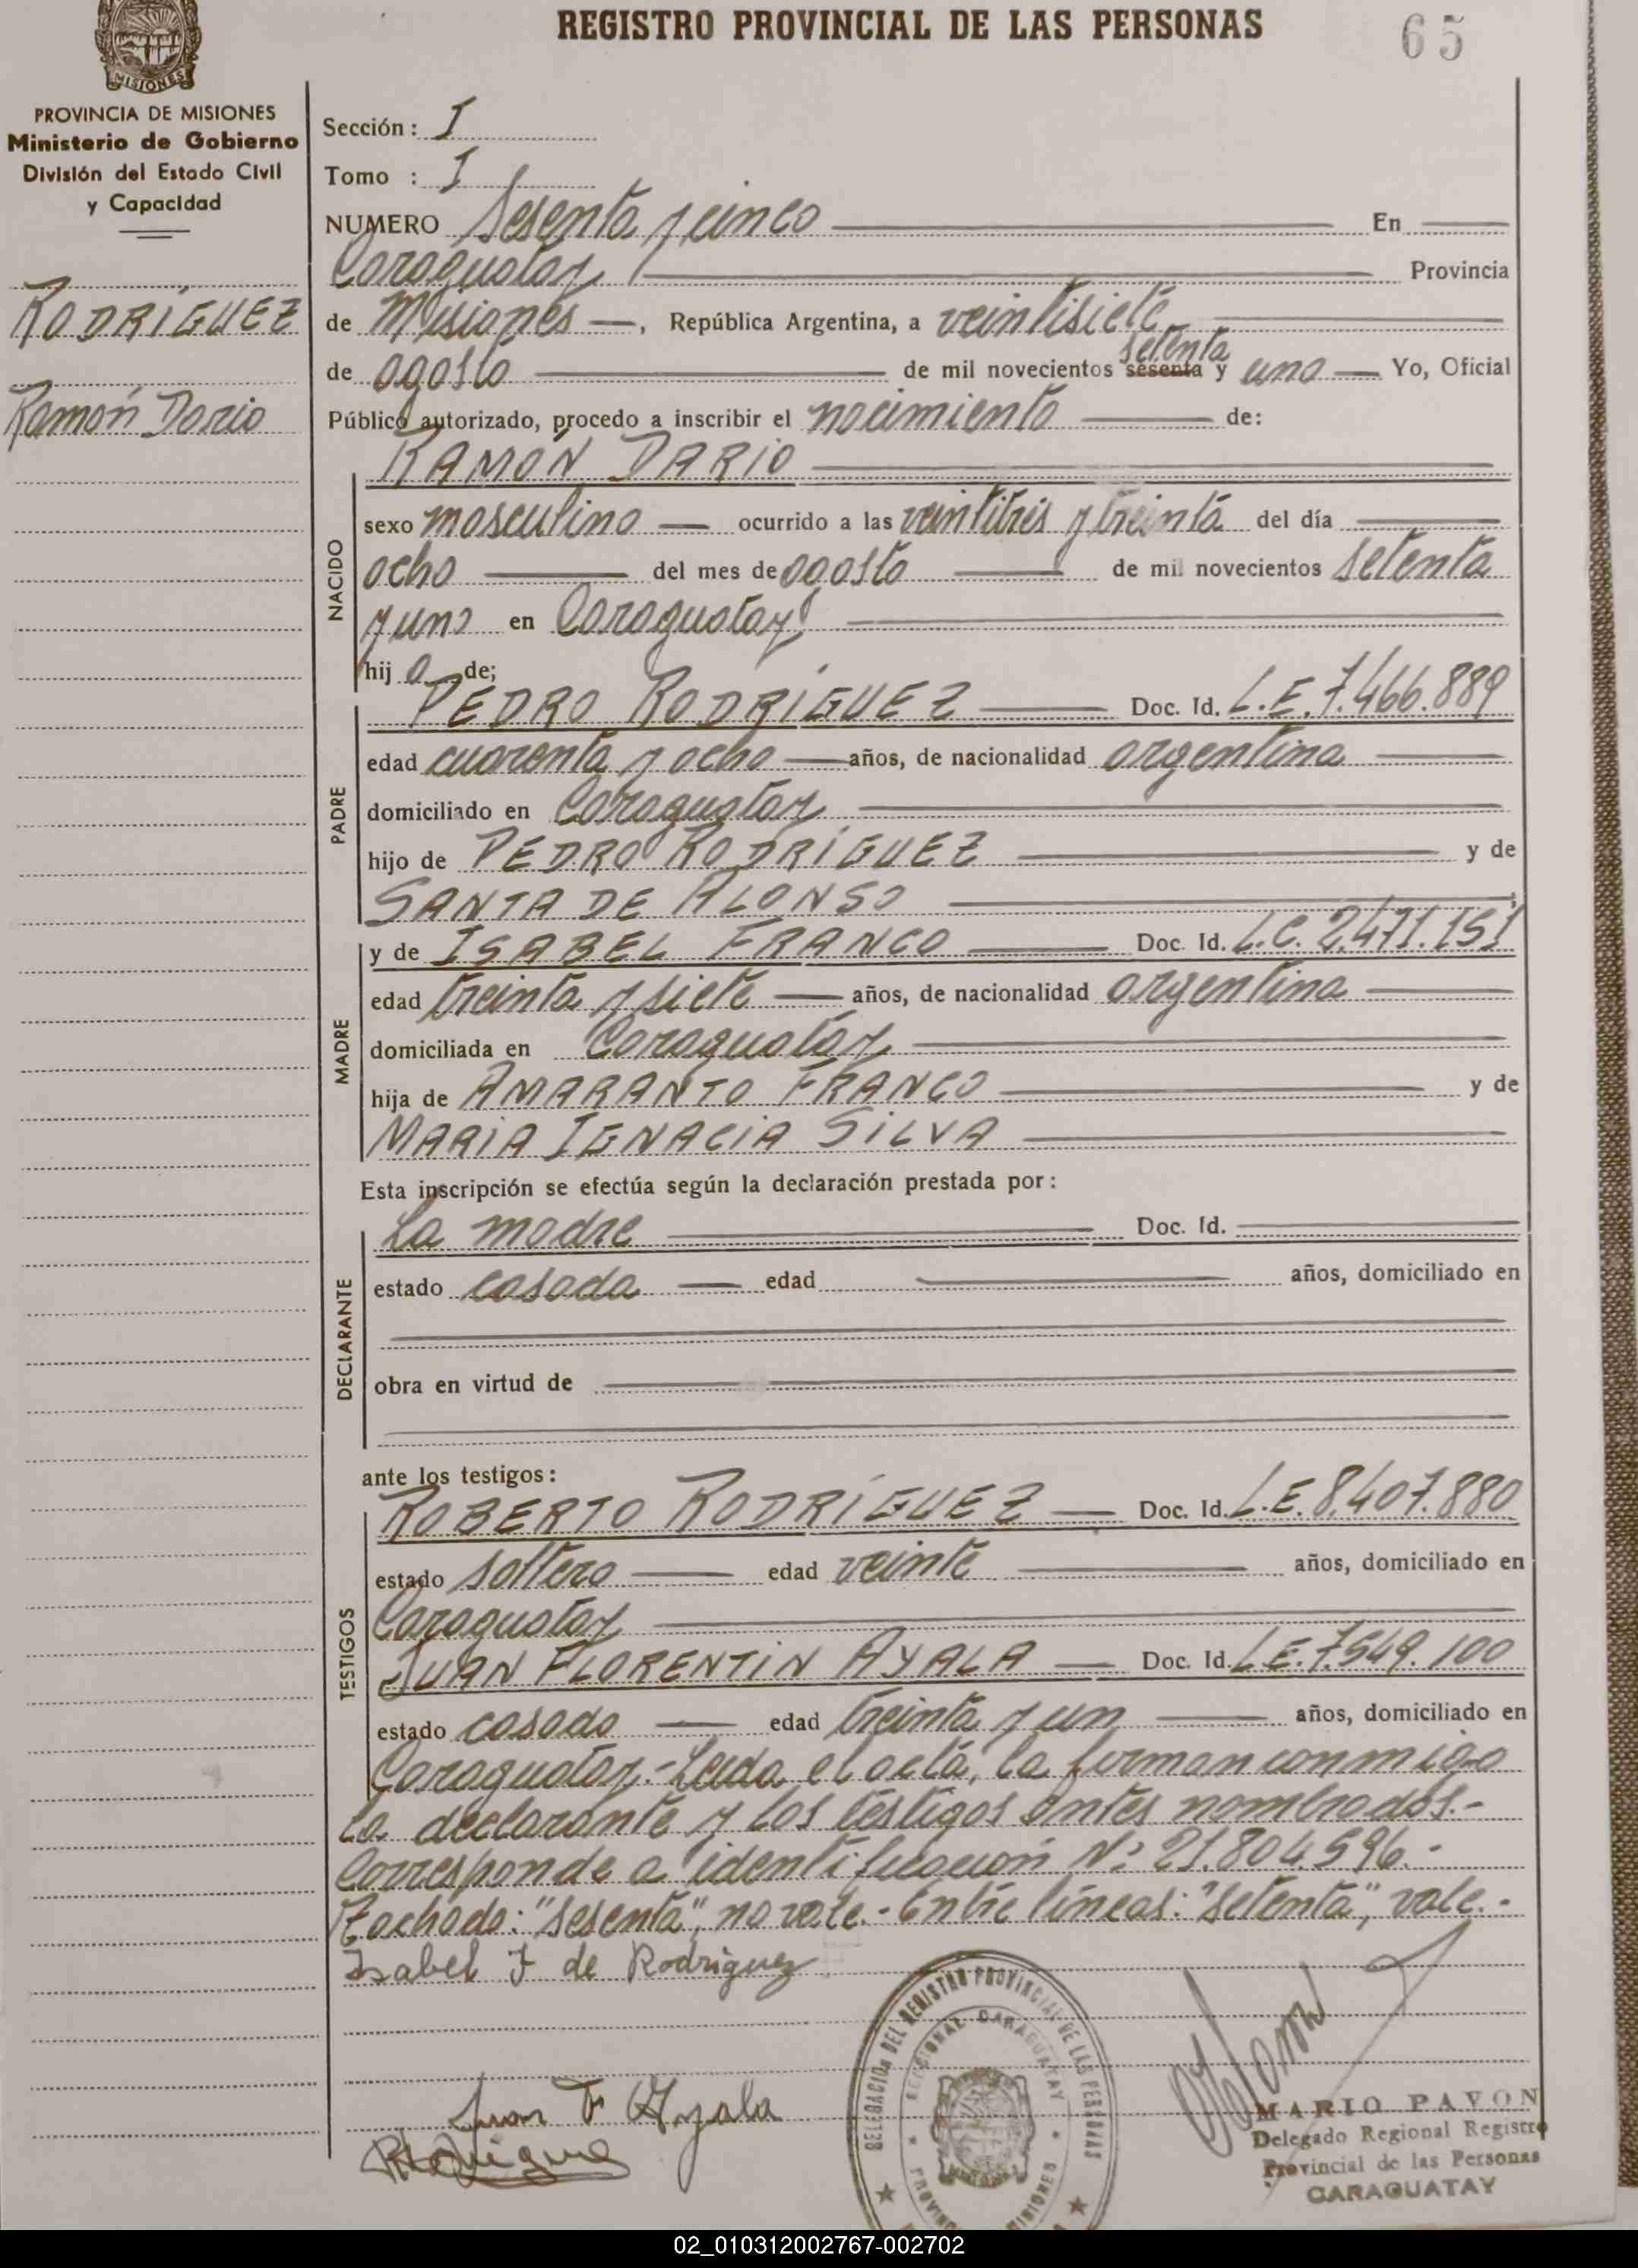 REGISTRO PROVINCIAL DE LAS PERSONAS
65
MISIONES
PROVINCIA DE MISIONES
Ministerio de Gobierno
División del Estado Civil
y Capacidad
RODRÍGUEZ
Ramón Dario
Sección: I
Tomo : I
NUMERO Sesenta y cinco En
Caraguatay Provincia
de Misiones —, República Argentina, a veintisiete
setenta
de agosto de mil novecientos sesenta y uno — Yo, Oficial
Público autorizado, procedo a inscribir el nacimiento de:
RAMÓN DARIO
NACIDO
sexo masculino — ocurrido a las veintitrés y treinta del día
ocho del mes de agosto de mil novecientos setenta
y uno en Caraguatay
hij o de;
PADRE
PEDRO RODRÍGUEZ Doc. Id. L.E. 7.466.889
edad cuarenta y ocho — años, de nacionalidad argentina
domiciliado en Caraguatay
hijo de PEDRO RODRÍGUEZ y de
SANTA DE ALONSO
MADRE
y de ISABEL FRANCO Doc. Id. L.C. 2.471.151
edad treinta y siete — años, de nacionalidad argentina
domiciliada en Caraguatay
hija de AMARANTO FRANCO y de
MARIA IGNACIA SILVA
Esta inscripción se efectúa según la declaración prestada por:
DECLARANTE
La madre Doc. Id.
estado casada — edad años, domiciliado en
obra en virtud de
ante los testigos:
TESTIGOS
ROBERTO RODRÍGUEZ — Doc. Id. L.E. 8.407.880
estado soltero — edad veinte años, domiciliado en
Caraguatay
JUAN FLORENTIN AYALA — Doc. Id. L.E. 7.549.100
estado casado — edad treinta y un años, domiciliado en
Caraguatay.- Leida el acta, la forman conmigo
la declarante y los testigos antes nombrados.-
Corresponde a identificación Nº 21.804.596.-
Tachado: "sesenta", no vale.- Entre líneas: "setenta", vale.-
Isabel F de Rodriguez
Juan F Ayala
DELEGACION DEL REGISTRO PROVINCIAL DE LAS PERSONAS
CARAGUATAY
MISIONES
MARIO PAVON
Delegado Regional Registro
Provincial de las Personas
CARAGUATAY
02_010312002767-002702